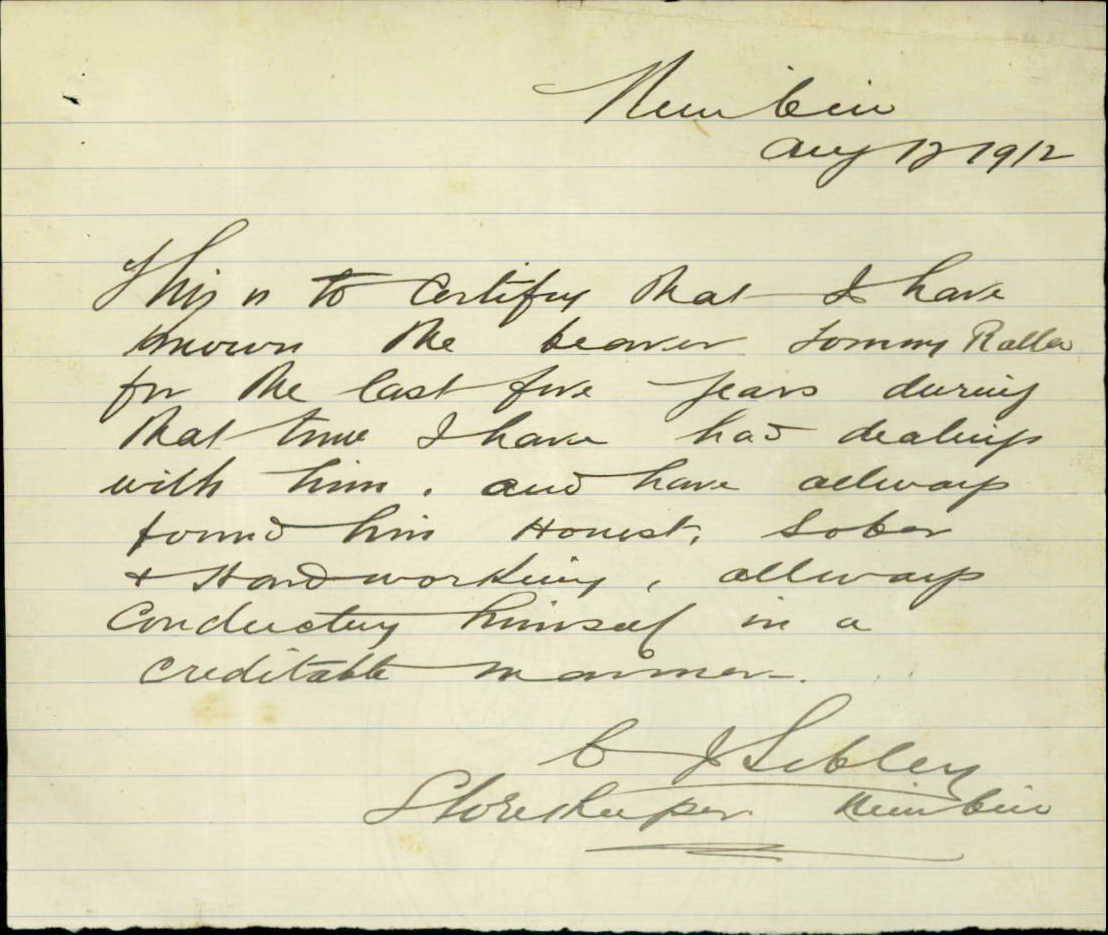 Nimbin
Aug 12 1912
This is to certify that I have
known the bearer Tommy
for the last five years during
that time I have had dealings
with him. and have allways
found him Honest, Sober
& Hard working, allways
Conducting himself in a
creditable manner.
C J Sibley
Storekeeper Nimbin